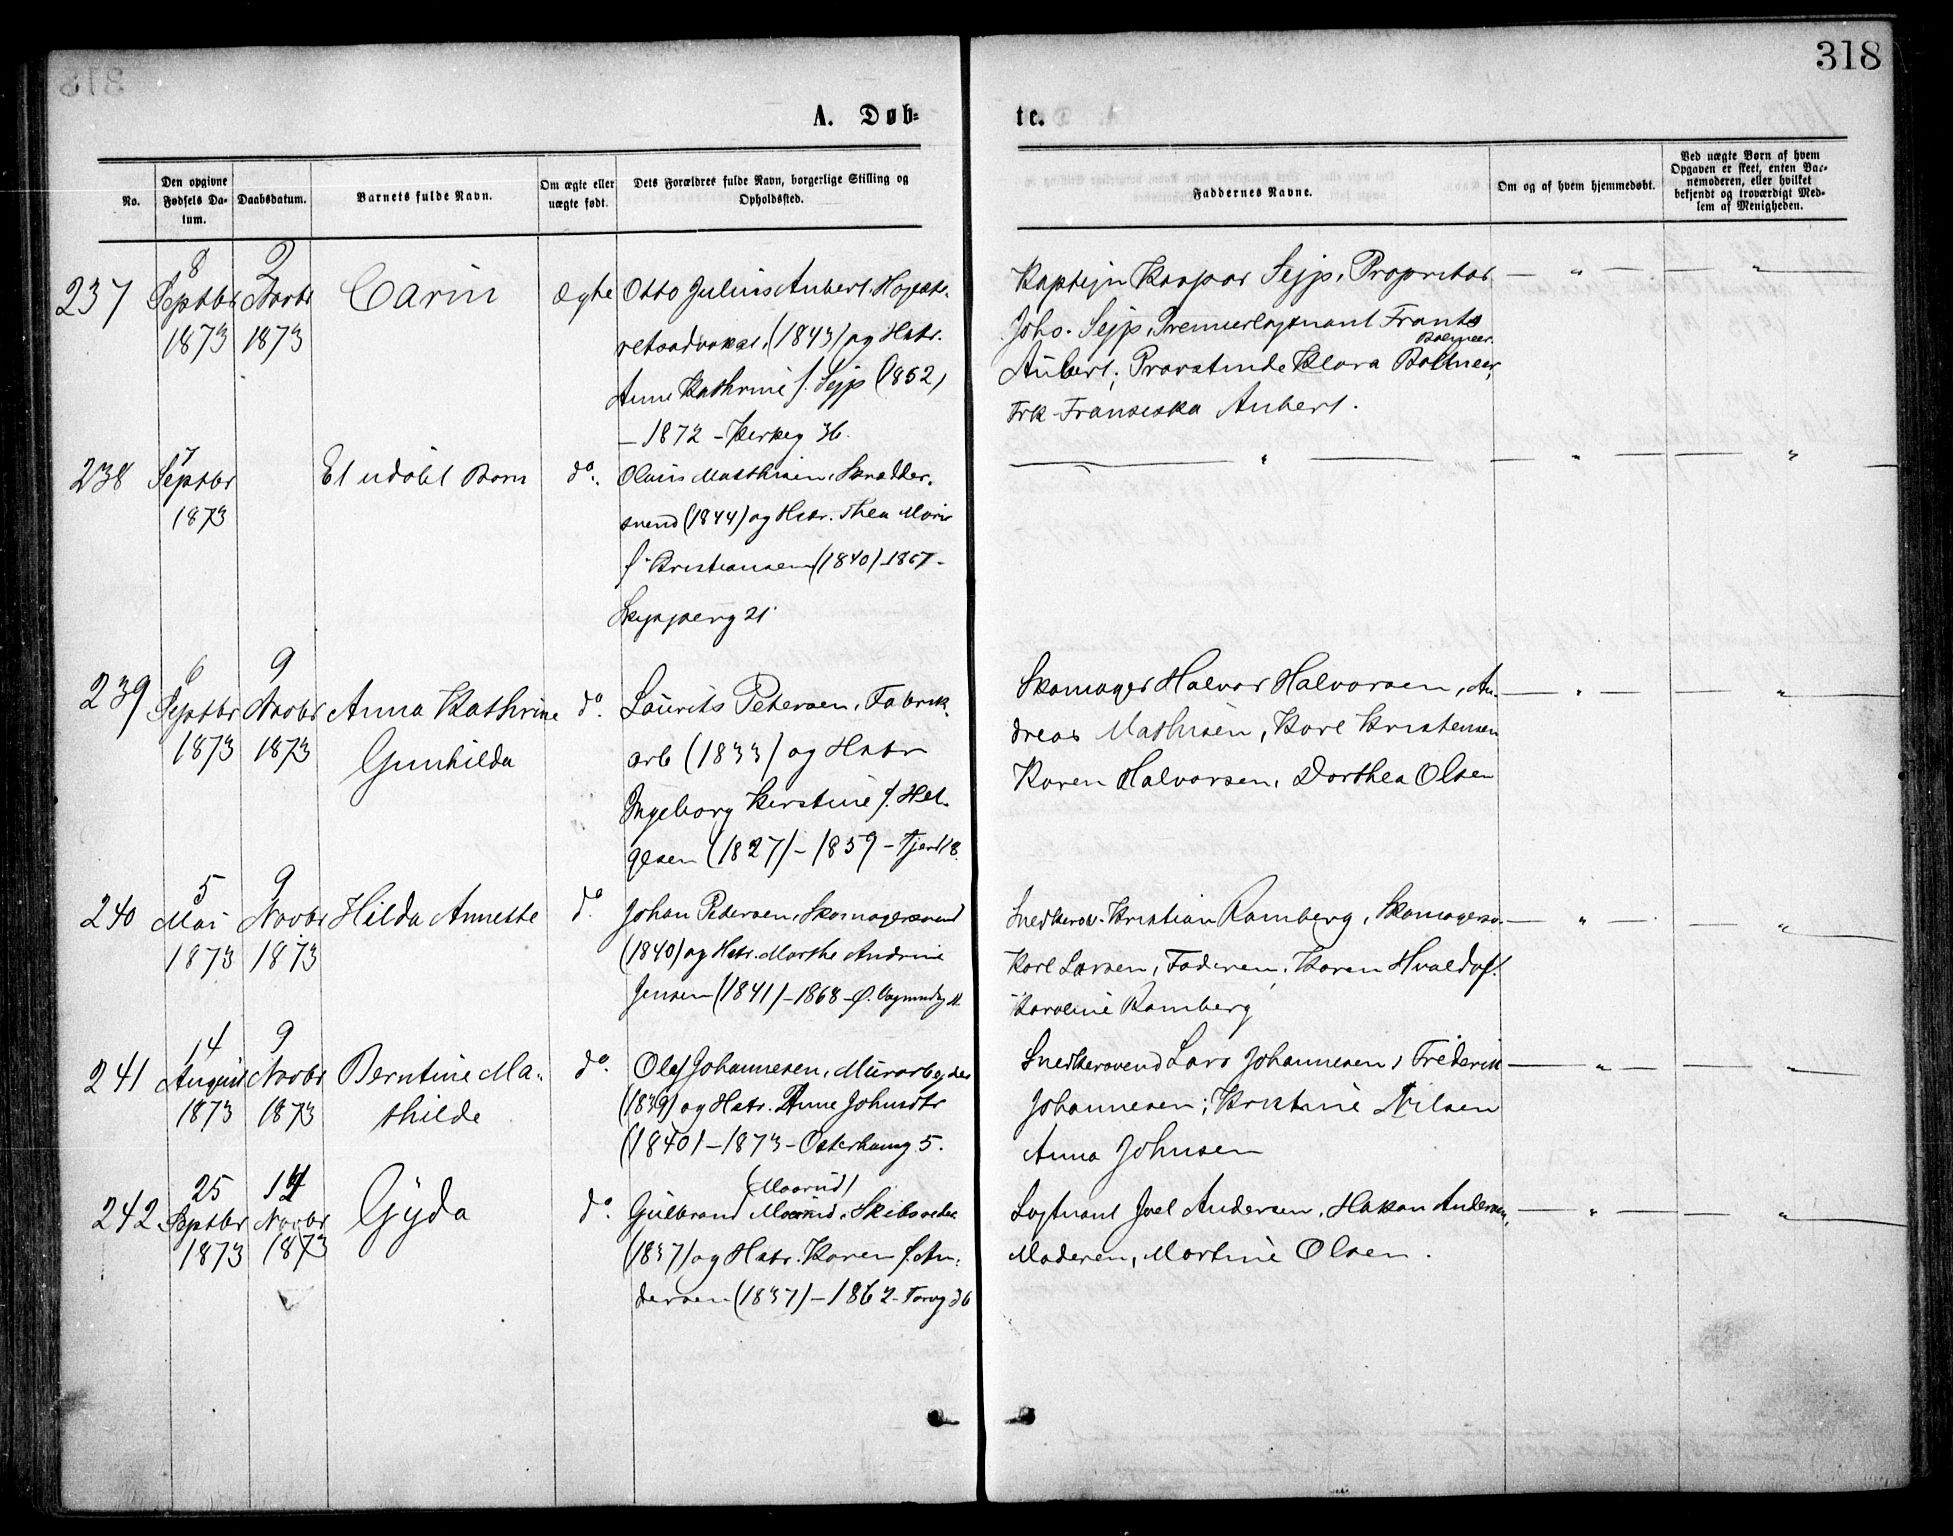 318
A. Døb-
te.
No.
Den opgivne Fødsels Da-tum.
Daabsdatum.
Barnets fulde Navn.
Om ægte eller uægte født.
Dets Forældres fulde Navn, borgerlige Stilling og Opholdssted.
Faddernes Navne.
Om og af hvem hjemmedøbt.
Ved uægte Børn af hvem Opgaven er skeet, enten Bar-nemoderen, eller hvilket bekjendt og troværdigt Med-lem af Menigheden.
237
8 Septbr 1873
2 Novbr 1873
Carin
ægte
Otto Julius Aubert, Høieste-
retsadvokat, (1843) og Hstr.
Anne Kathrine f. Sejp (1852)
— 1872 - Kirkeg 36.
Kaptejn Kaspar Sejp, Proprietær
Johs. Sejp, Premierløjtnant Frants
Aubert; Provstinde Klara
Frk Fransiska Aubert.
238
7 Septbr 1873
Et udøbt Barn
do.
Olaus Matthisen, Skrædder-
svend (1844) og Hstr. Thea Marie
f. Kristiansen (1840) - 1867 -
21
239
6 Septbr 1873
9 Novbr 1873
Anna Kathrine
Gunhilda
do.
Laurits Petersen, Fabrik-
arb (1833) og Hstr
Ingeborg Kirstine f. Hel-
gesen (1827) - 1859 -
Skomager Halvor Halvorsen, An-
dreas Mathisen, Karl Kristensen
Karen Halvorsen, Dorthea Olsen
240
5 Mai 1873
9 Novbr 1873
Hilda Annette
do.
Johan Pedersen, Skomagersvend
(1840) og Hstr. Marthe Andrine
Jensen (1841) - 1868 -
Snedkersv. Kristian Ramberg, Skomagersv.
Karl Larsen, Faderen; Karen
Karoline Ramberg
241
14 August 1873
9 Novbr 1873
Berntine Ma-
thilde
do.
Olaf Johannesen, Murarbejder
(1839) og Hstr. Anne Johnsdtr
(1840) - 1873 - Osterhausg 5.
Snedkersvend Lars Johannesen, Frederik
Johannesen; Kristine Nilsen
Anna Johnsen
242
25 Septbr 1873
Novbr 1873
Gyda
do.
(Moarud)
Gulbrand Skibsreder
(1837) og Hstr. Karen f. An-
dersen (1837) - 1862 - Torvg 36
Løjtnant Joel Andersen, Hakon Andersen,
Moderen, Martine Olsen.